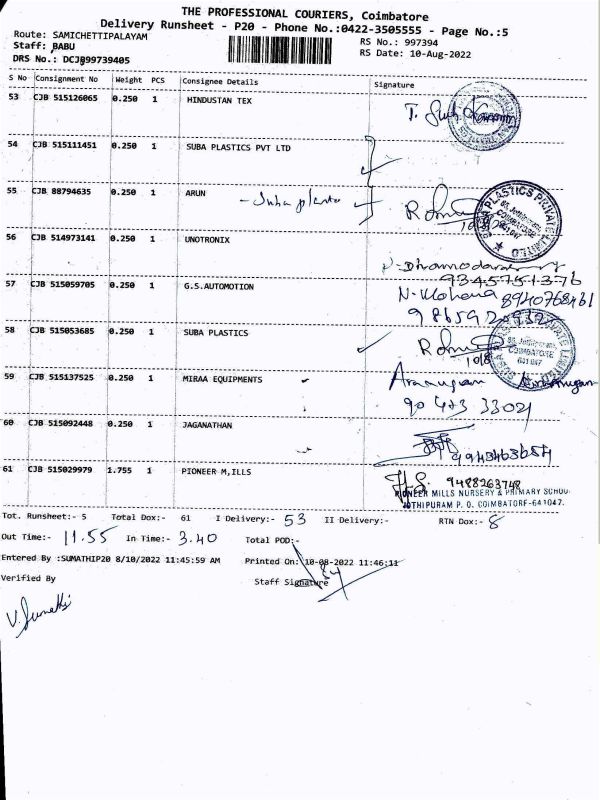 THE PROFESSIONAL COURIERS, Coimbatore
Delivery Runsheet - P20 - Phone No.:0422-3505555 - Page No.:5
Route: SAMICHETTIPALAYAM
RS No.: 997394
Staff: BABU
RS Date: 10-Aug-2022
DRS No.: DCJB99739405
S No Consignment No Weight PCS Consignee Details Signature
53 CJB 515126065 0.250 1 HINDUSTAN TEX
54 CJB 515111451 0.250 1 SUBA PLASTICS PVT LTD
55 CJB 88794635 0.250 1 ARUN - Suba plastic
56 CJB 514973141 0.250 1 UNOTRONIX
9345751376
57 CJB 515059705 0.250 1 G.S.AUTOMOTION N. Mohana 8940768461
58 CJB 515053685 0.250 1 SUBA PLASTICS
59 CJB 515137525 0.250 1 MIRAA EQUIPMENTS Arumugam
90 473 33021
60 CJB 515092448 0.250 1 JAGANATHAN
9943463654
61 CJB 515029979 1.755 1 PIONEER M,ILLS 9488263748
PIONEER MILLS NURSERY & PRIMARY SCHOO
JOTHIPURAM P. O. COIMBATORE-641047.
Tot. Runsheet:- 5 Total Dox:- 61 I Delivery:- 53 II Delivery:- RTN Dox:- 8
Out Time:- 11.55 In Time:- 3.40 Total POD:-
Entered By :SUMATHIP20 8/10/2022 11:45:59 AM Printed On: 10-08-2022 11:46:11
Verified By Staff Signature
V. Sumathi